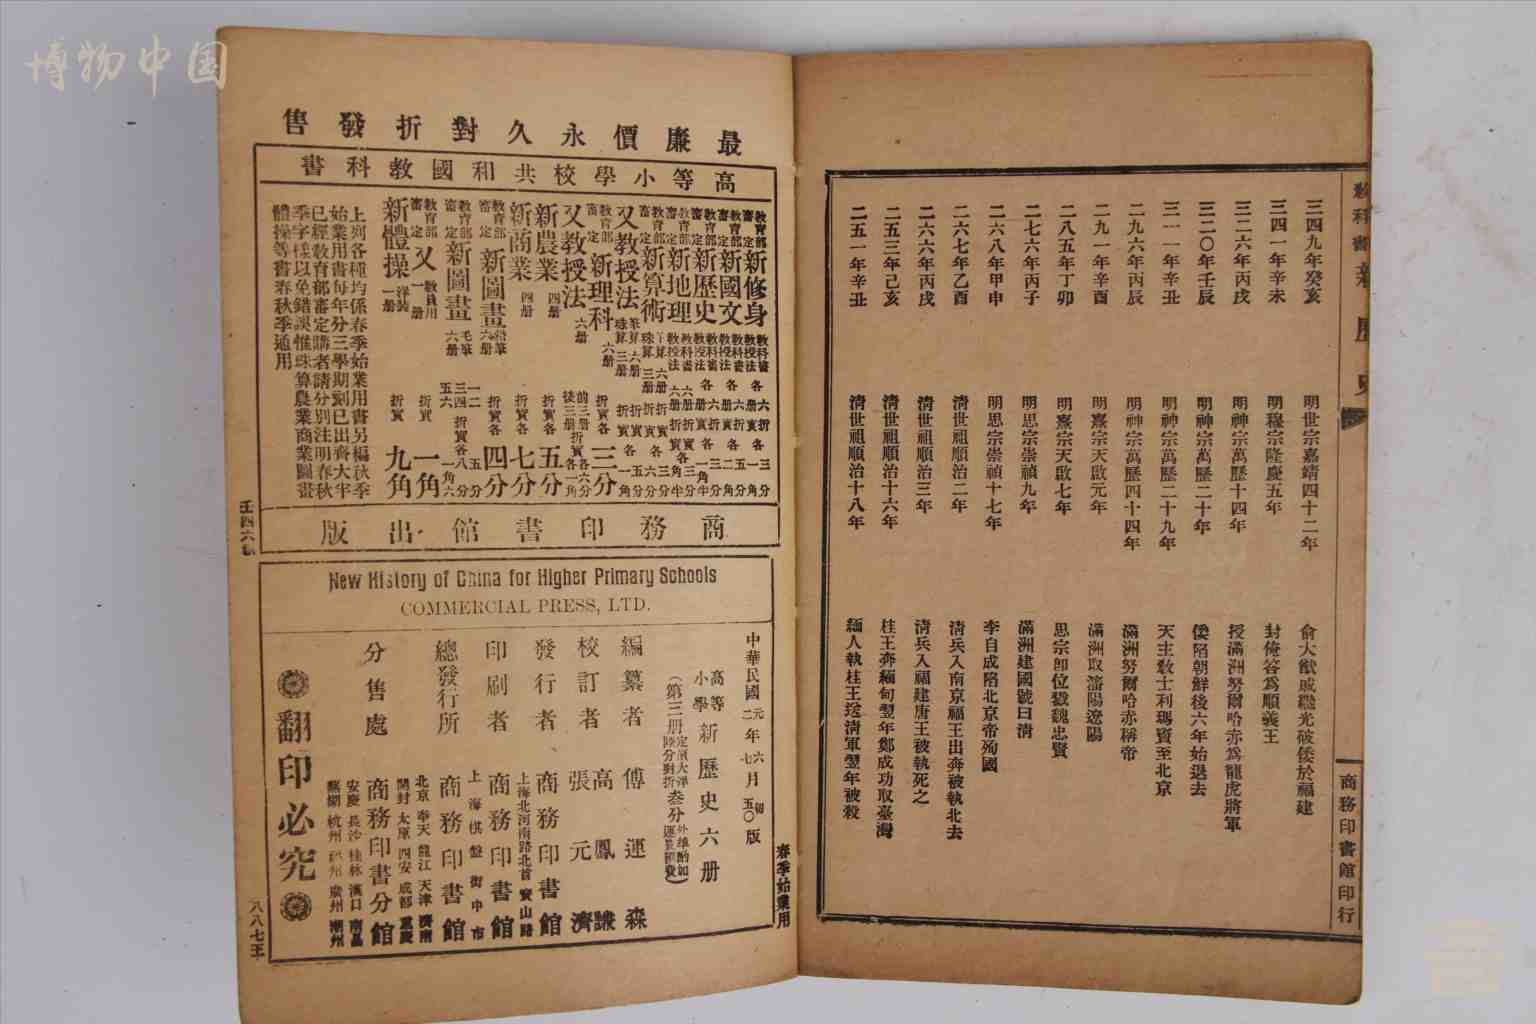 博物中国
教科書新歷史
商務印書館印行
三四九年癸亥 明世宗嘉靖四十二年 俞大猷戚繼光破倭於福建
三四一年辛未 明穆宗隆慶五年 封俺答爲順義王
三二六年丙戌 明神宗萬歷十四年 授滿洲努爾哈赤爲龍虎將軍
三二〇年壬辰 明神宗萬歷二十年 倭陷朝鮮後六年始退去
三一一年辛丑 明神宗萬歷二十九年 天主敎士利瑪竇至北京
二九六年丙辰 明神宗萬歷四十四年 滿洲努爾哈赤稱帝
二九一年辛酉 明熹宗天啟元年 滿洲取瀋陽遼陽
二八五年丁卯 明熹宗天啟七年 思宗卽位戮魏忠賢
二七六年丙子 明思宗崇禎九年 滿洲建國號曰清
二六八年甲申 明思宗崇禎十七年 李自成陷北京帝殉國
二六七年乙酉 清世祖順治二年 清兵入南京福王出奔被執北去
二六六年丙戌 清世祖順治三年 清兵入福建唐王被執死之
二五三年己亥 清世祖順治十六年 桂王奔緬甸翌年鄭成功取臺灣
二五一年辛丑 清世祖順治十八年 緬人執桂王送清軍翌年被殺
最廉價永久對折發售
高等小學校共和國教科書
教育部審定 新修身 教科書教授法 各六册 折實各三分
教育部審定 新國文
教育部審定 新歷史
教育部審定 新地理
教育部審定 新算術
又教授法 筆算六册 珠算三册
教育部審定 新理科 六册 折實各三分
又教授法 六册
新農業 四册 折實各五分
新商業 四册 折實各七分
教育部審定 新圖畫 鉛筆六册 折實各四分
教育部審定 新圖畫 毛筆六册
教育部審定 又 教員用一册 折實一角
新體操 洋裝一册 折實九角
上列各種均係春季始業用書另編秋季
始業用書每年分三學期刻已出齊大半
已經敎育部審定購者請分別注明春秋
季字樣以免錯誤惟珠算農業商業圖畫
體操等書春秋季通用
商務印書館出版
New History of China for Higher Primary Schools
COMMERCIAL PRESS, LTD.
春季始業用
中華民國元年六月初版
二年七月五〇版
高等小學新歷史六册
（第三册
編纂者 傅運森
校訂者 高鳳謙 張元濟
發行者 商務印書館
上海北河南路北首寶山路
印刷者 商務印書館
上海棋盤街中市
總發行所 商務印書館
北京 奉天 龍江 天津 濟南
開封 太原 西安 成都 重慶
分售處 商務印書分館
安慶 長沙 桂林 漢口 南昌
蕪湖 杭州 福州 廣州 潮州
翻印必究
八八七王